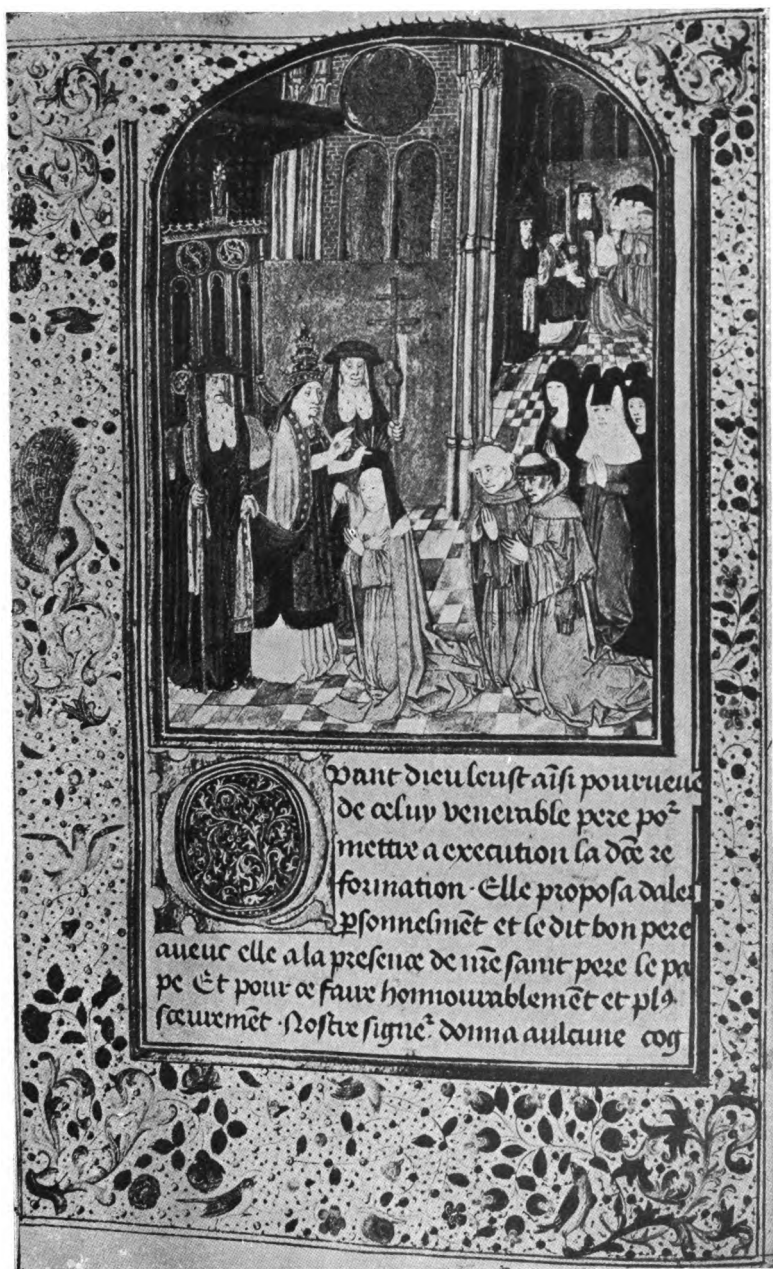 Quant dieu leust aīsi pourueue
de celuy venerable pere poꝛ̃
mettre a execution la dc̄e re
formation · Elle proposa daler
ꝑsonnelmēt et le dit bon pere
aueuc elle a la presence de nr̄e saint pere le pa
pe Et pour ce faire honnourablemēt et plꝰ
sceuremēt · Nostre signeꝛ̃ donna aulcune cog